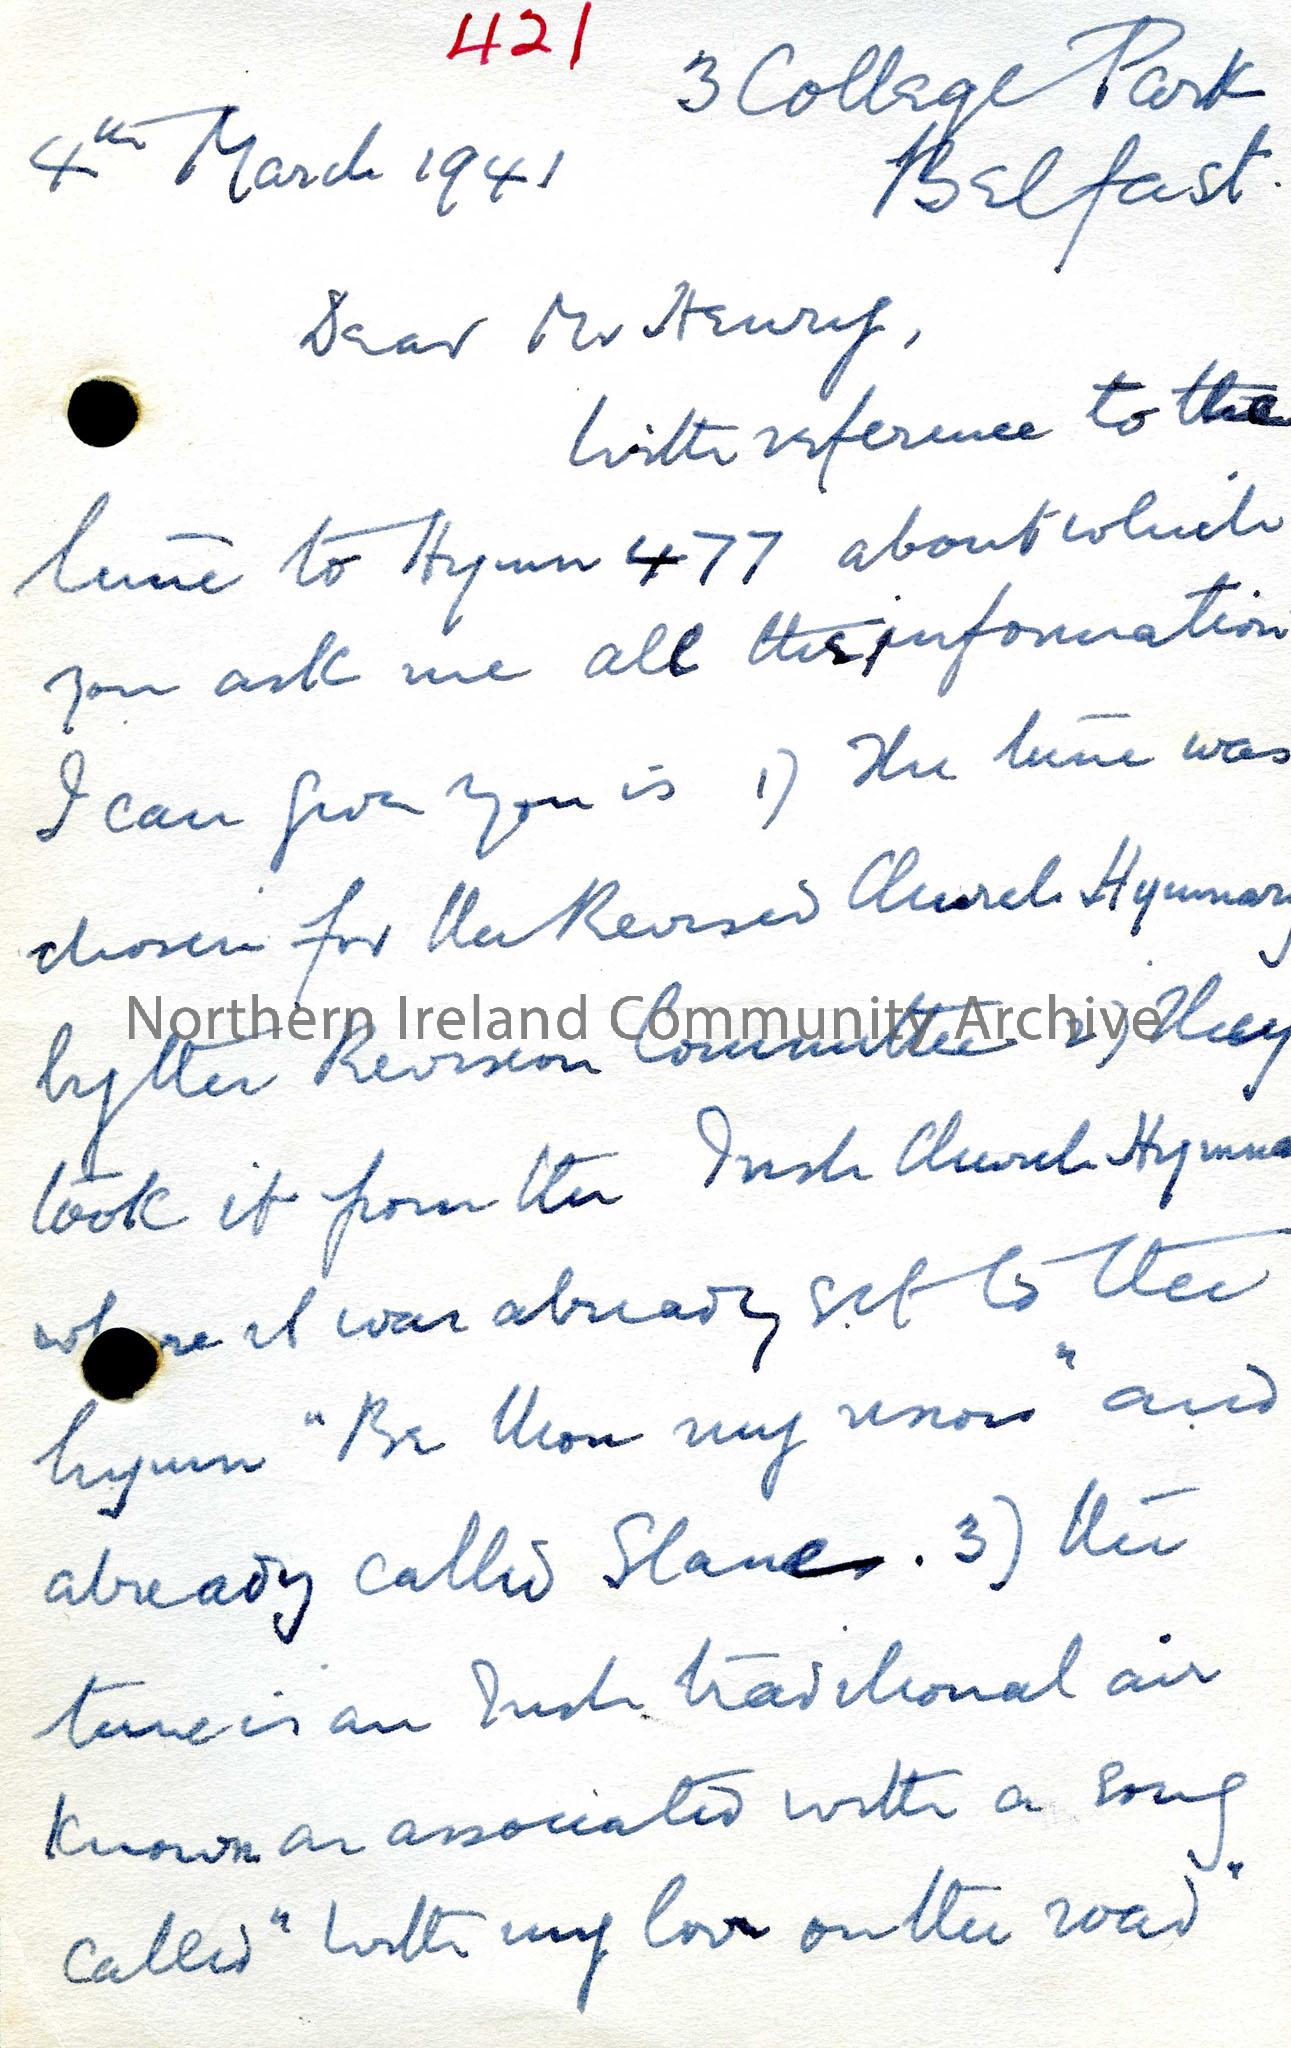 421
3 College Park
Belfast.
4th March 1941
Dear Mr Henry,
With reference to the
tune to Hymn 477 about which
you ask me all the information
I can give you is 1) The tune was
chosen for the Revised Church Hymnary
by the Revision Committee 2) They
took it from the Irish Church Hymna
where it was already set to the
hymn "Be thou my vision" and
already called Slane. 3) the
tune is an Irish traditional air
known as associated with a song
called "With my love on the road"
Northern Ireland Community Archive